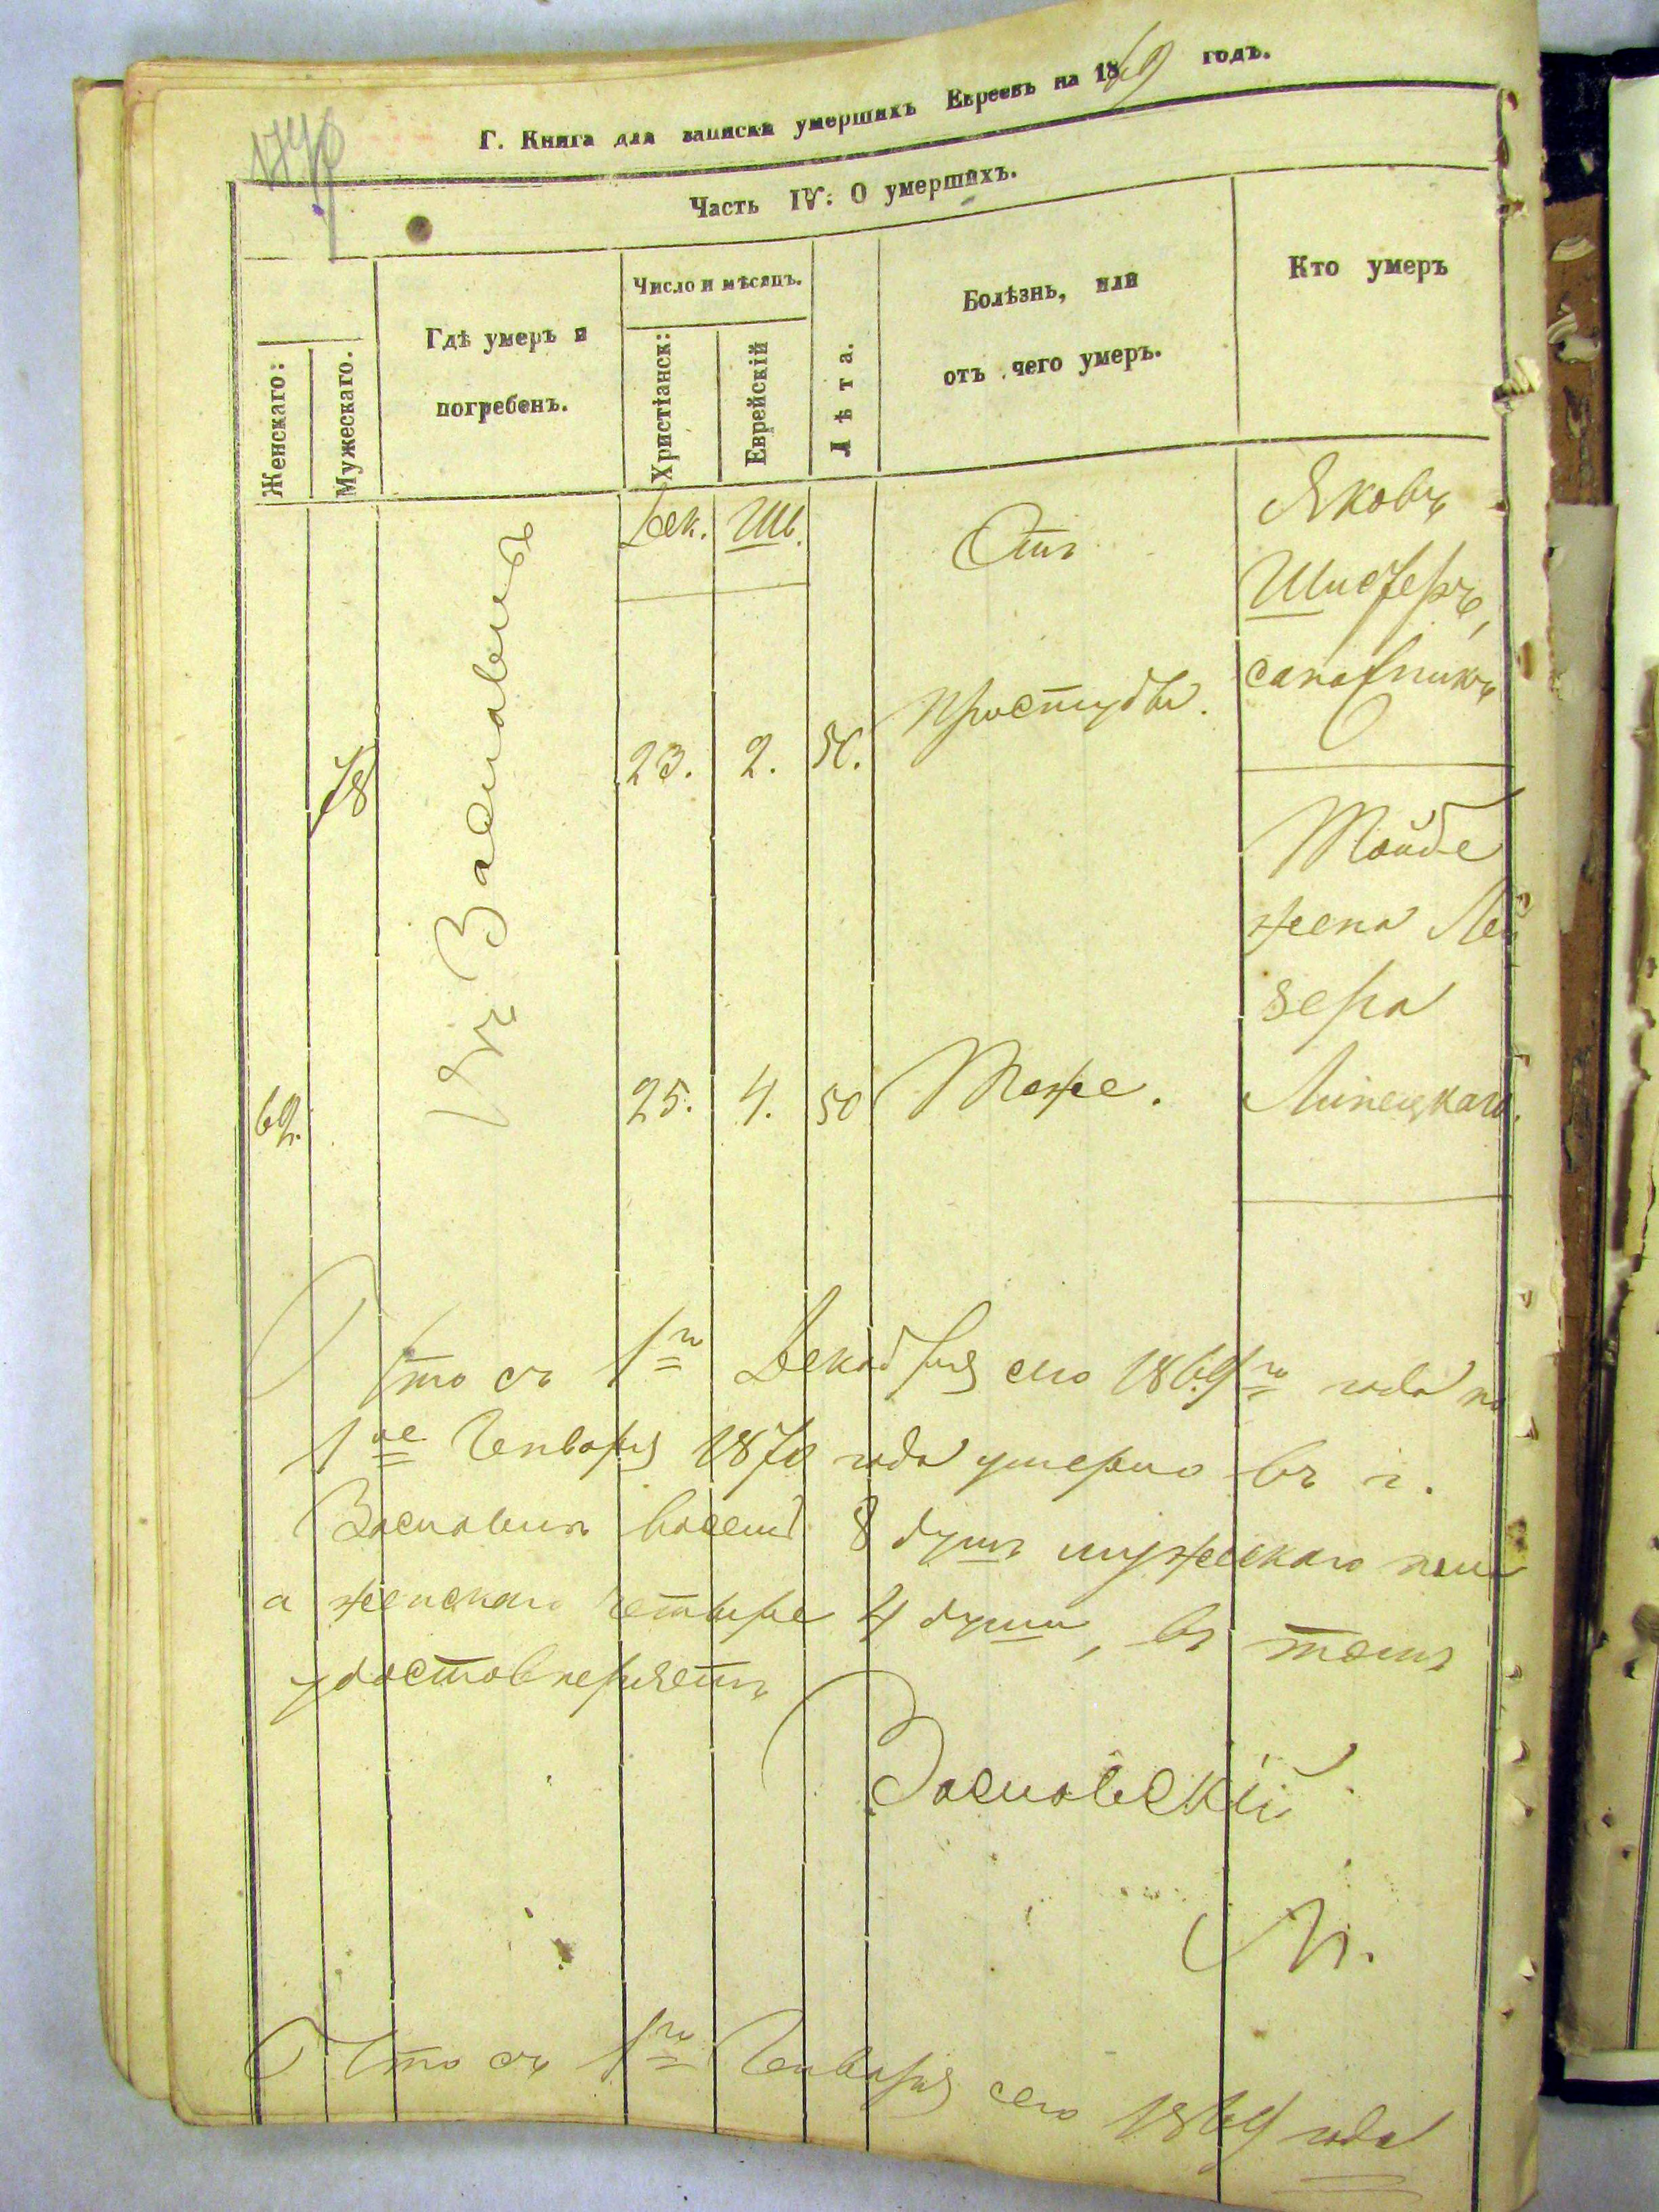 Г. Книга для записки умершихъ Евреевъ на 1869 годъ.
Часть IV: О умершихъ.
Женскаго:
Мужескаго.
Гдѣ умеръ и
погребенъ.
Число и мѣсяцъ.
Христіанск:
Еврейскій
Лѣта.
Болѣзнь, или
отъ чего умеръ.
Кто умеръ
78
Въ Заславлѣ
Дек. Шв.
23. 2. 50.
Отъ
простуды.
Яковъ
сапожникъ
69.
25. 4. 50
Тоже.
Тойбе
жена Лей
зера
Липецкаго.
Что съ 1го Декабря сего 1869го года по
1ое Генваря 1870 года умерло въ г.
Заславлѣ восемь 8 душъ мужескаго пола
а женскаго четыре 4 души, въ томъ
удостовѣряетъ
Заславскій
Р.
Что съ 1го Генваря сего 1869 года